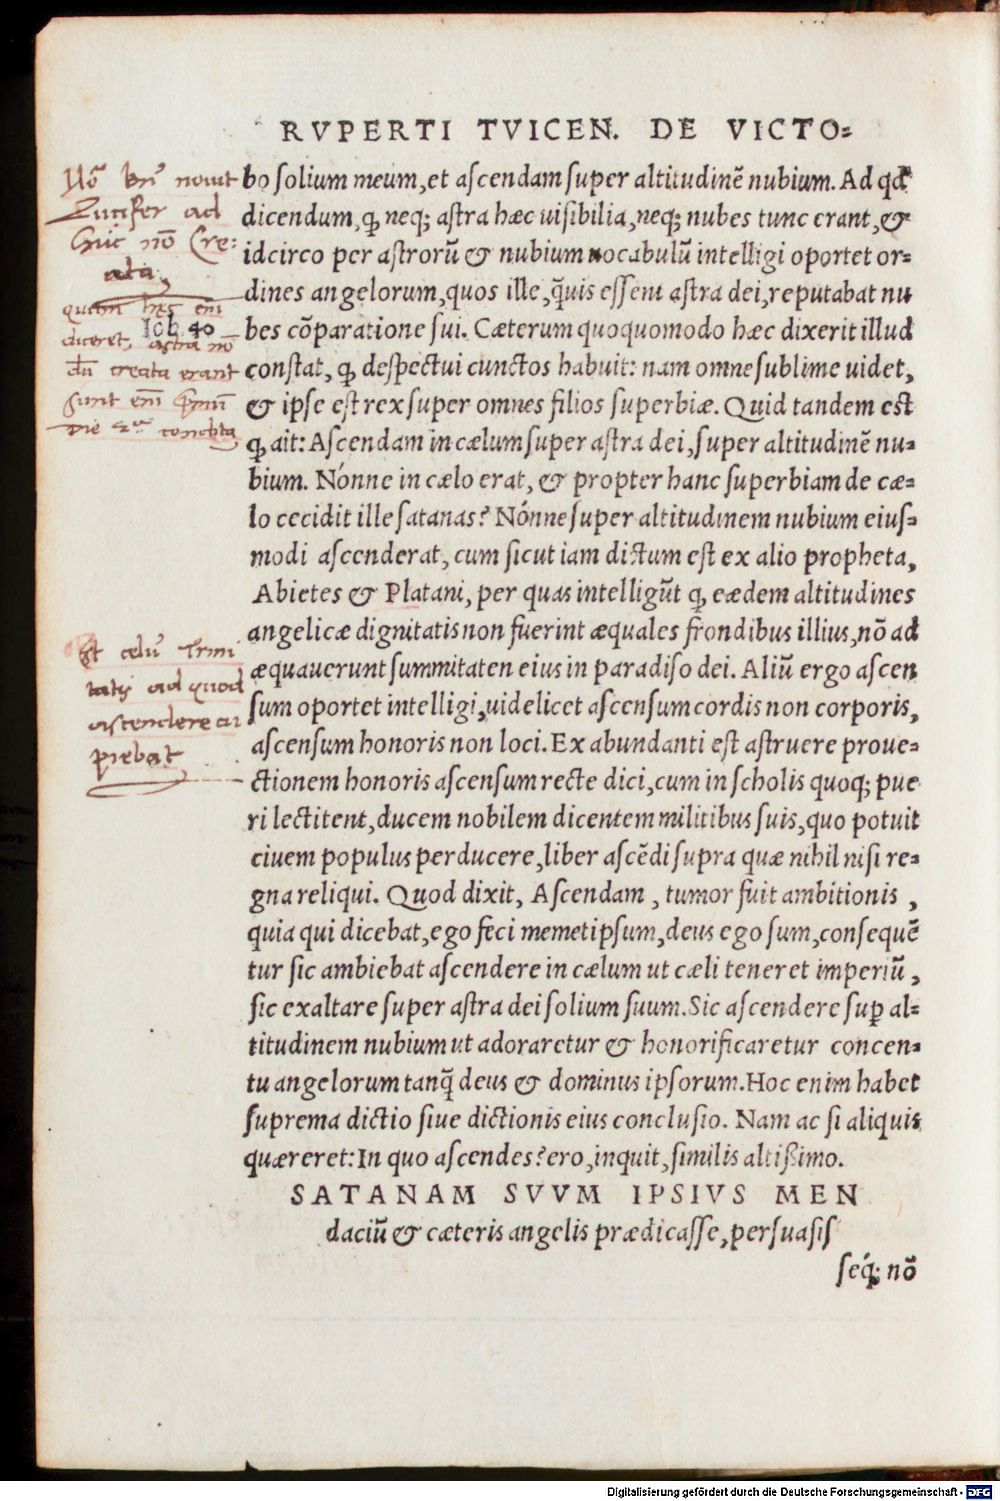 RVPERTI TVICEN. DE VICTO=
bo solium meum, et ascendam super altitudinē nubium. Ad qd
dicendum, ꝙ neq; astra hæc uisibilia, neq; nubes tunc erant, &
idcirco per astrorū & nubium uocabulū intelligi oportet or=
dines angelorum, quos ille, q̃uis essent astra dei, reputabat nu
bes cōparatione sui. Cæterum quoquomodo hæc dixerit illud
constat, ꝙ despectui cunctos habuit: nam omne sublime uidet,
& ipse est rex super omnes filios superbiæ. Quid tandem est
ꝙ ait: Ascendam in cælum super astra dei, super altitudinē nu=
bium. Nónne in cælo erat, & propter hanc superbiam de cæ=
lo cecidit ille satanas? Nónne super altitudinem nubium eius=
modi ascenderat, cum sicut iam dictum est ex alio propheta,
Abietes & Platani, per quas intelligūt ꝙ eædem altitudines
angelicæ dignitatis non fuerint æquales frondibus illius, nō ad
æquauerunt summitaten eius in paradiso dei. Aliū ergo ascen
sum oportet intelligi, uidelicet ascensum cordis non corporis,
ascensum honoris non loci. Ex abundanti est astruere proue=
ctionem honoris ascensum recte dici, cum in scholis quoq; pue
ri lectitent, ducem nobilem dicentem militibus suis, quo potuit
ciuem populus perducere, liber ascēdi supra quæ nihil nisi re=
gna reliqui. Quod dixit, Ascendam, tumor fuit ambitionis,
quia qui dicebat, ego feci memetipsum, deus ego sum, consequē
tur sic ambiebat ascendere in cælum ut cæli teneret imperiū,
sic exaltare super astra dei solium suum. Sic ascendere suꝑ al=
titudinem nubium ut adoraretur & honorificaretur concen=
tu angelorum tanq̃ deus & dominus ipsorum. Hoc enim habet
suprema dictio siue dictionis eius conclusio. Nam ac si aliquis
quæreret: In quo ascendes? ero, inquit, similis altissimo.
SATANAM SVVM IPSIVS MEN
daciū & cæteris angelis prædicasse, persuasis
seq́; nō
Nō bn̄ nouit
Lucifer ad
huc nō Cre:
ata,
Iob 40
diceret, astra nō
dū creata erant
sunt em̄
Die
Est celū Trini
tatis ad quod
ascendere cu
piebat
Digitalisierung gefördert durch die Deutsche Forschungsgemeinschaft - DFG